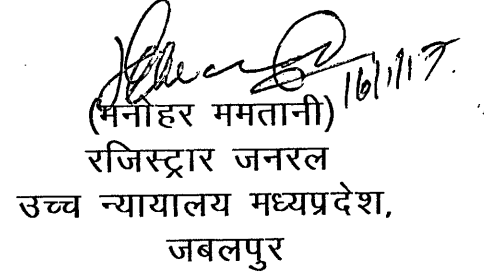 16/1/17.
(मनोहर ममतानी)
रजिस्ट्रार जनरल
उच्च न्यायालय मध्यप्रदेश,
जबलपुर